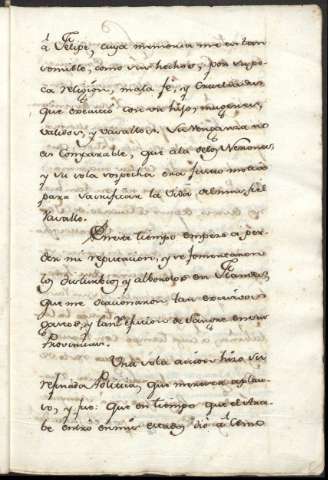 á Felipe, cuya memoria me es tan
como sus hechos, por su po-
ca religion, mala fé, y crueldades
que executó con su hijo, mugeres,
validos, y vasallos. Su venganza no
es comparable, que á la de los Nerones,
y su sola sospecha era justo motivo
para sacrificar la vida del mas fiel
Vasallo.
tiempo empezé a per-
der mi reputacion, y se fomentaron
los disturbios y alborotos en Flandes,
que me ocasionaron tan excesivos
gastos, y tanta efusion de sangre en sus
Provincias.
Una sola accion hizo su
refinada Policia, que merece aplau-
so, y fue: Que en tiempo que el Ara-
be entró en mis dió á